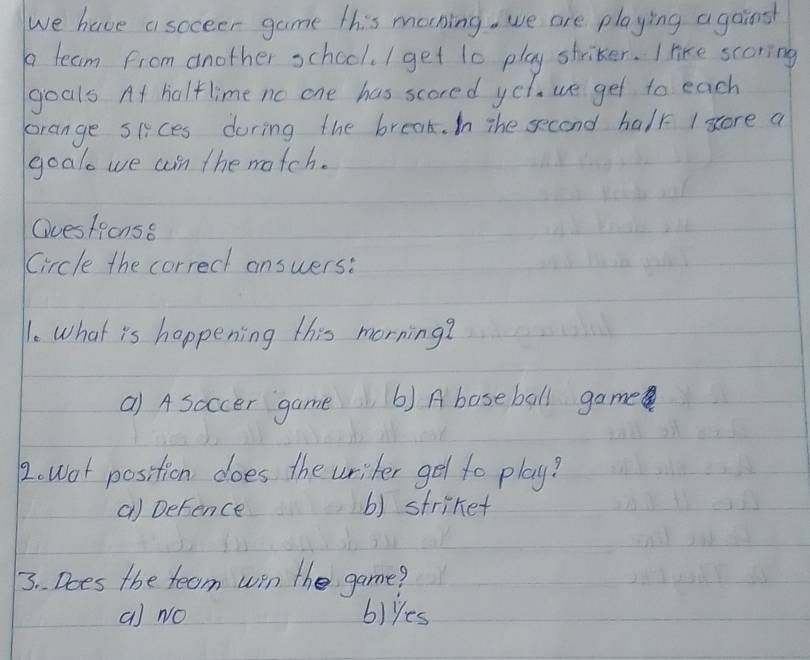 We have a soceer game this morning. we are playing against
a team from another school. I get to play striker. I like scoring
goals At halftime no one has scored yet. we get to each
orange slices during the break. In the second half I score a
goal. we win the match.
Questions:
Circle the correct answers:
1. What is happening this morning?
a) A soccer game b) A baseball game
2. Wat position does the writer get to play?
a) Defence b) striket
3. Does the team win the game?
a) No b) Yes